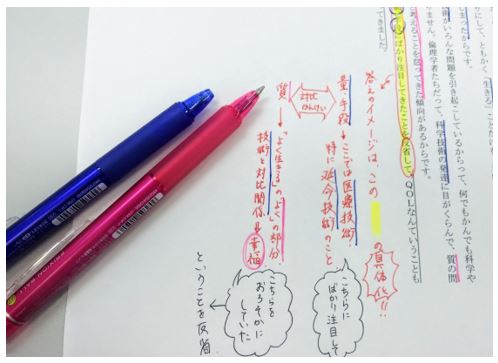 りにして、ともかく「生きる」ことだけ
しまったからです。
術がいろんな問題を引き起こしているからって、何でもかんでも科学や
ません。倫理学者たちだって、科学技術の発達に目がくらんで、質の問
考えることを怠ってきた傾向があるからです。
ばかり注目してきたことを反省して、QOLなんていうことも
てきました。
答えのイメージは、この
の具体化!!
量・手段→ここでは医療技術
特に延命技術のこと
対比
かんけい
質→「よく生きる」の「よく」の部分
技術と対比関係→幸福
こちらに
ばかり注目して
こちらを
おろそかに
していた
ということを反省